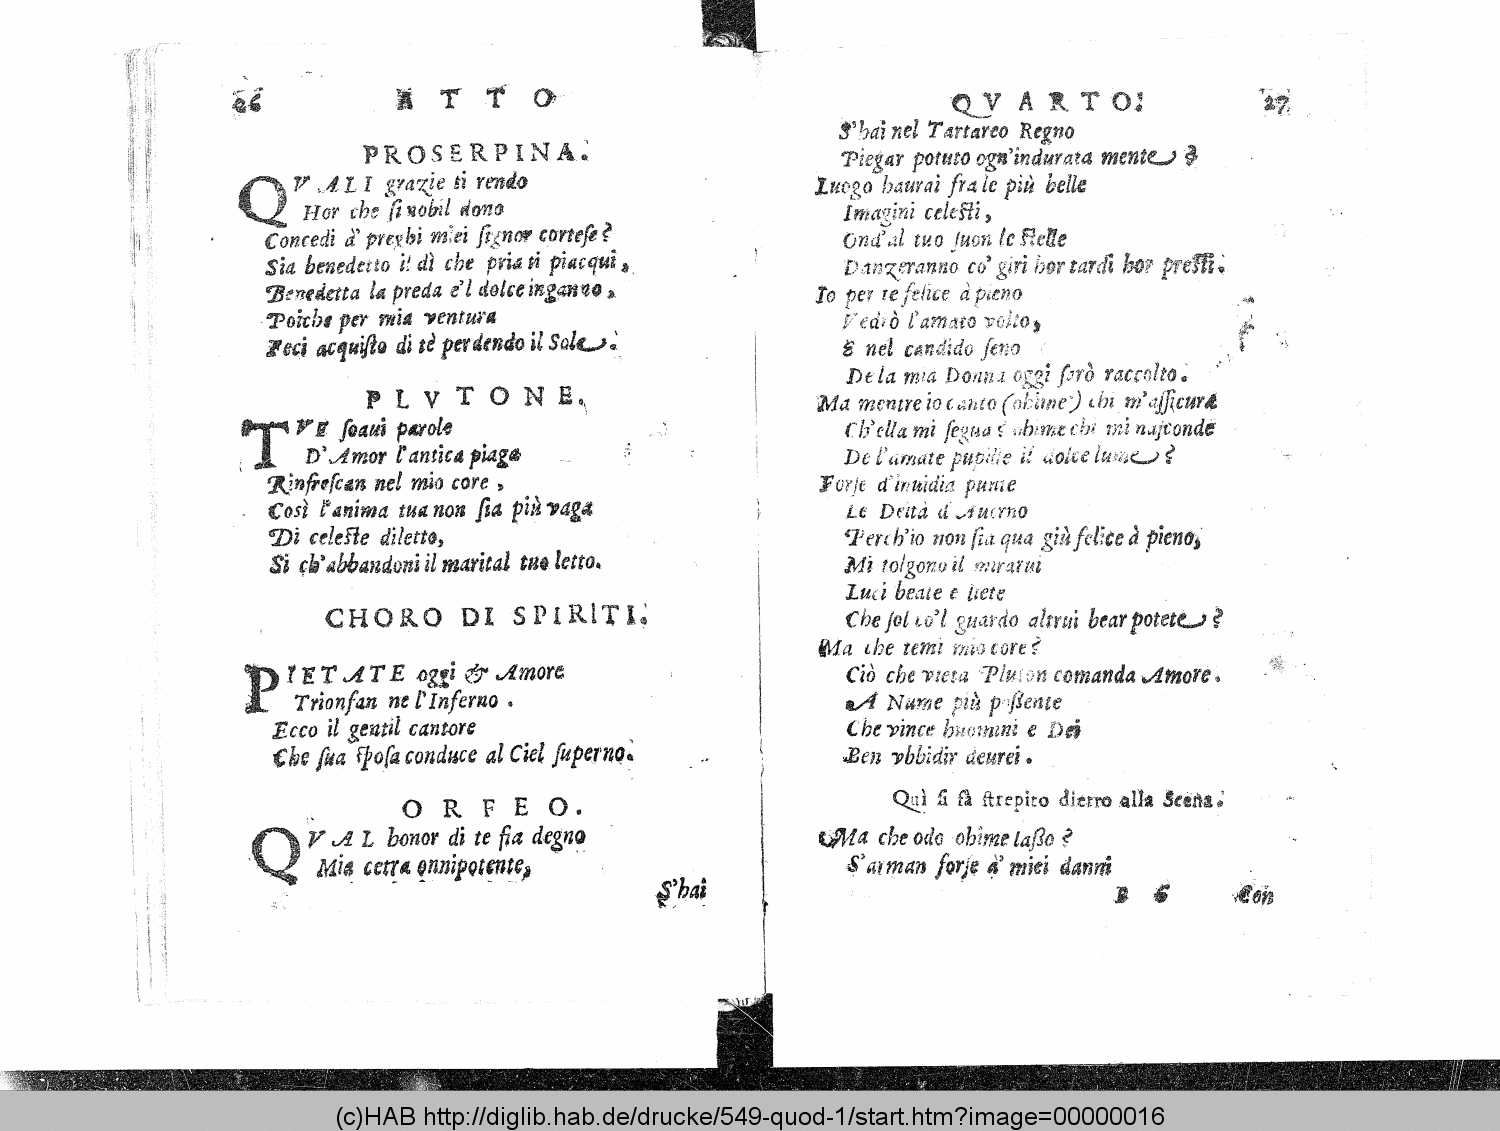 26 ATTO
PROSERPINA.
QVALI grazie ti rendo
Hor che ſi nobil dono
Concedi à preghi miei ſignor corteſe?
Sia benedetto il dì che pria ti piacqui,
Benedetta la preda e'l dolce inganno,
Poiche per mia ventura
Feci acquiſto di tè perdendo il Sole.
PLVTONE.
TVE ſoaui parole
D'Amor l'antica piaga
Rinfreſcan nel mio core,
Così l'anima tua non ſia più vaga
Di celeſte diletto,
Si ch'abbandoni il marital tuo letto.
CHORO DI SPIRITI.
PIETATE oggi & Amore
Trionfan ne l'Inferno.
Ecco il gentil cantore
Che ſua ſpoſa conduce al Ciel ſuperno.
ORFEO.
QVAL honor di te ſia degno
Mia cetra onnipotente,
S'hai
QVARTO. 27
S'hai nel Tartareo Regno
Piegar potuto ogn'indurata mente?
Luogo haurai fra le più belle
Imagini celeſti,
Ond'al tuo ſuon le ſtelle
Danzeranno co' giri hor tardi hor preſti.
Io per te felice à pieno
Vedrò l'amato volto,
E nel candido ſeno
De la mia Donna oggi ſarò raccolto.
Ma mentre io canto (ohime) chi m'aſſicura
Ch'ella mi ſegua? ohime chi mi naſconde
De l'amate pupille il dolce lume?
Forſe d'inuidia punte
Le Deità d'Auerno
Perch'io non ſia qua giù felice à pieno,
Mi tolgono il mirarui
Luci beate e liete
Che ſol co'l guardo altrui bear potete?
Ma che temi mio core?
Ciò che vieta Pluton comanda Amore.
A Nume più poſſente
Che vince huomini e Dei
Ben vbbidir deurei.
Quì ſi fà ſtrepito dietro alla Scena.
Ma che odo ohime laſſo?
S'arman forſe à miei danni
B 6 Con
(c)HAB http://diglib.hab.de/drucke/549-quod-1/start.htm?image=00000016